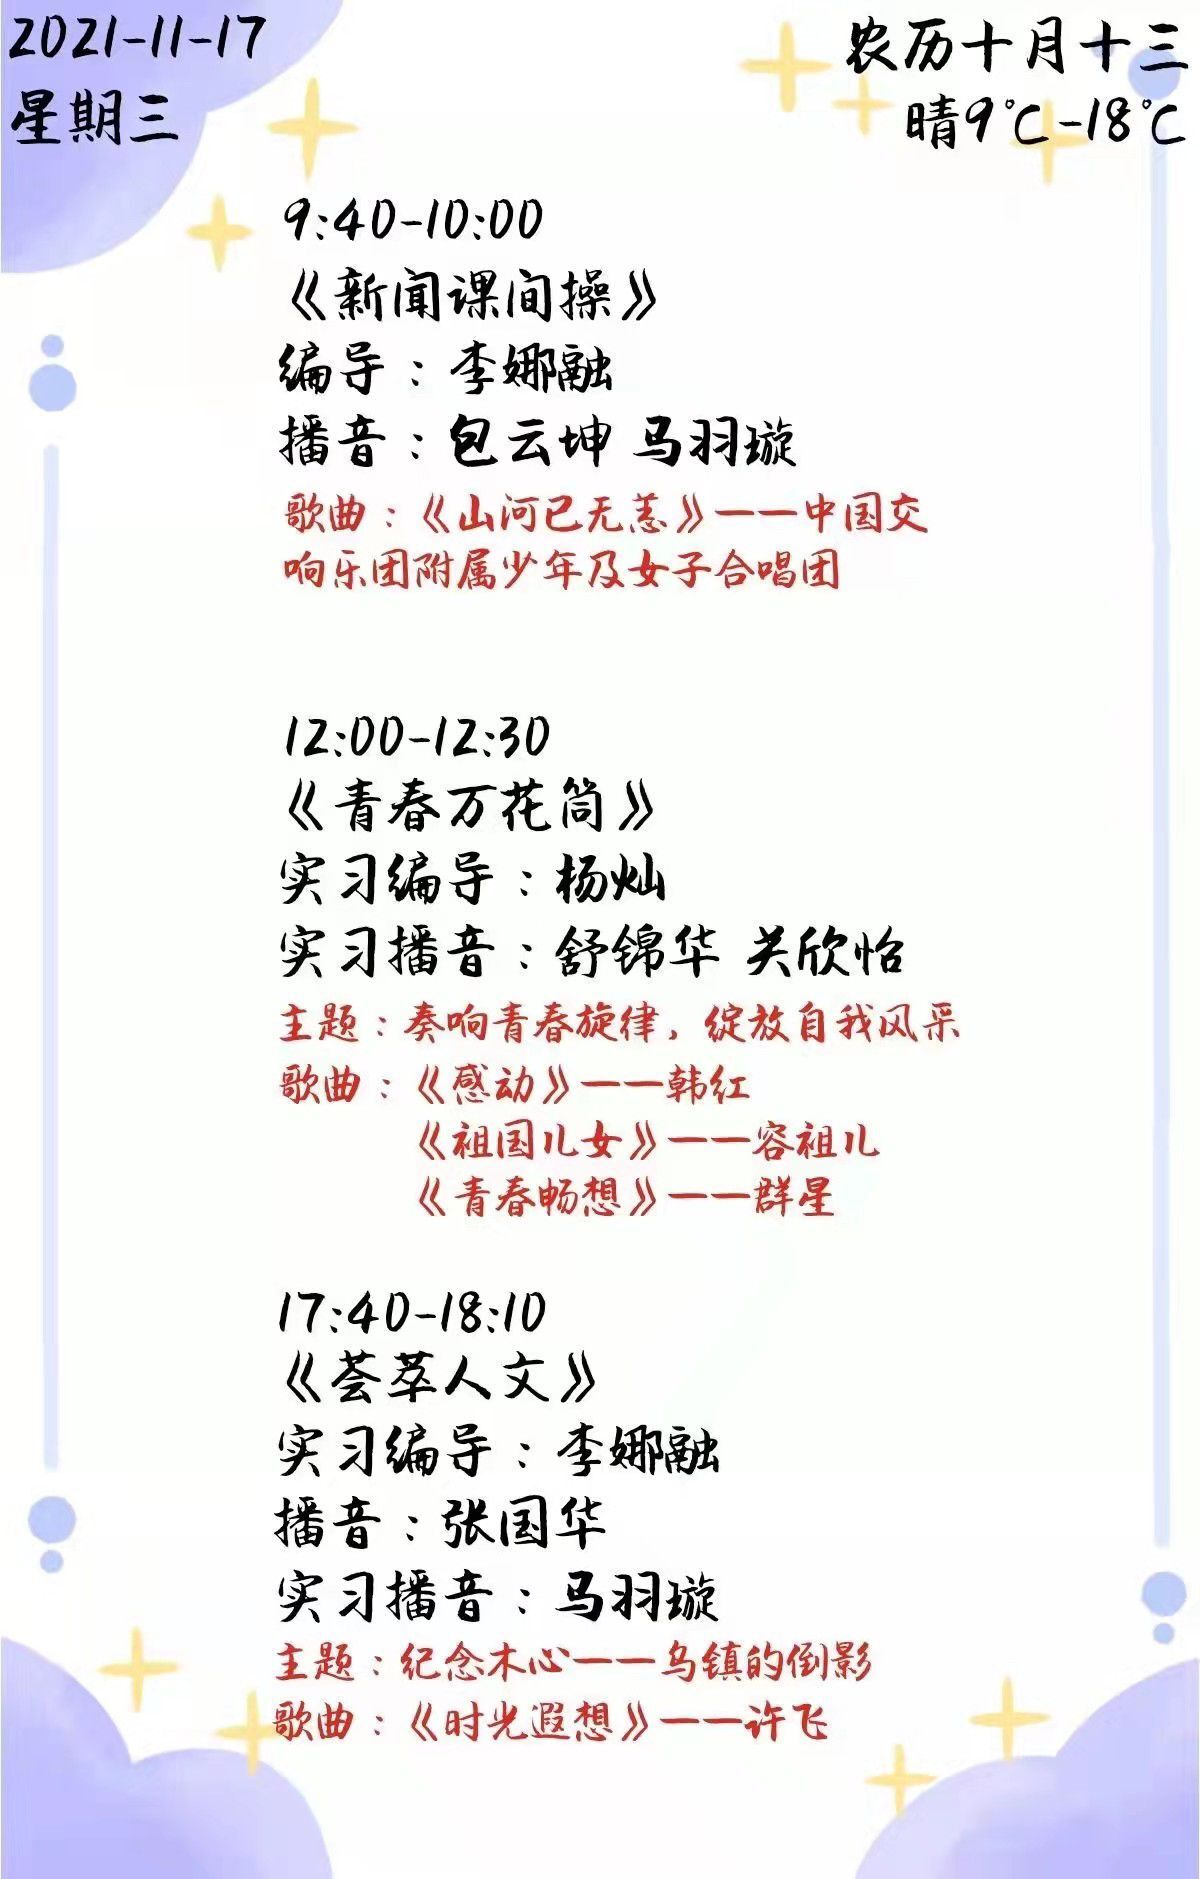 2021-11-17
星期三
农历十月十三
晴9℃-18℃
9:40-10:00
《新闻课间操》
编导：李娜融
播音：包云坤 马羽璇
歌曲：《山河已无恙》——中国交
响乐团附属少年及女子合唱团
12:00-12:30
《青春万花筒》
实习编导：杨灿
实习播音：舒锦华 关欣怡
主题：奏响青春旋律，绽放自我风采
歌曲：《感动》——韩红
《祖国儿女》——容祖儿
《青春畅想》——群星
17:40-18:10
《荟萃人文》
实习编导：李娜融
播音：张国华
实习播音：马羽璇
主题：纪念木心——乌镇的倒影
歌曲：《时光遐想》——许飞